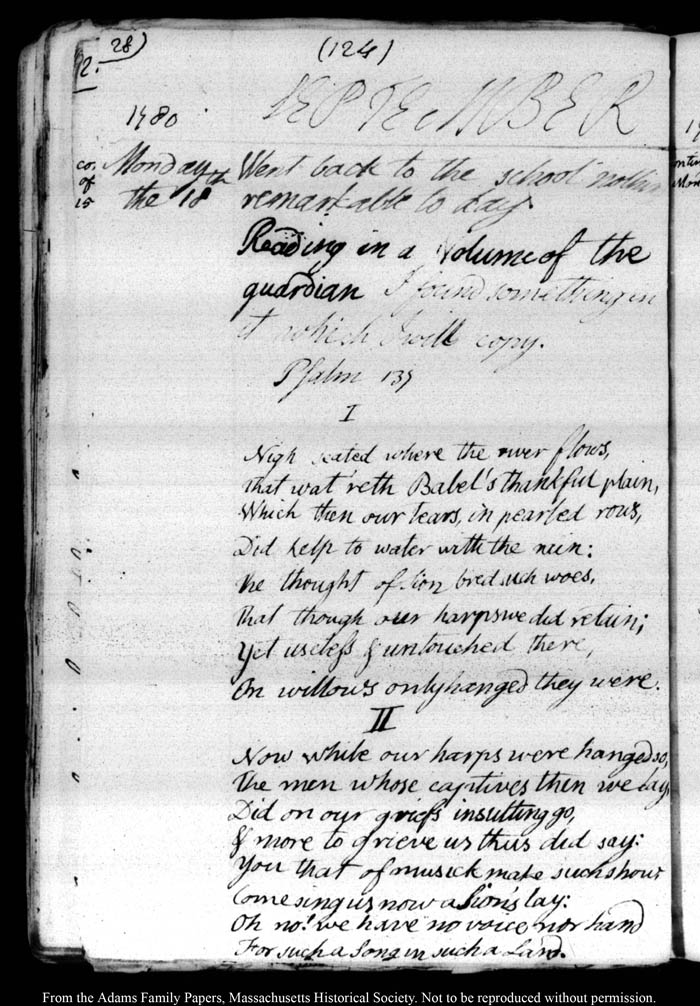 28)
(124)
2.
SEPTEMBER
1780
co. of 15
Monday the 18th
Went back to the school nothing
remarkable to day.
Reading in a volume of the
guardian I found something in
it which I will copy.
Psalm 137
I
Nigh seated where the river flows,
That wat'reth Babel's thankful plain,
Which then our tears, in pearled rows,
Did help to water with the rain:
The thought of Sion bred such woes,
That though our harps we did retain;
Yet useless & untouched there,
On willows only hanged they were.
II
Now while our harps were hanged so,
The men whose captives then we lay,
Did on our griefs insulting go,
& more to grieve us thus did say:
You that of musick make such show
Come sing us now a Sion's lay:
Oh no! we have no voice nor hand
For such a Song in such a Land.
From the Adams Family Papers, Massachusetts Historical Society. Not to be reproduced without permission.